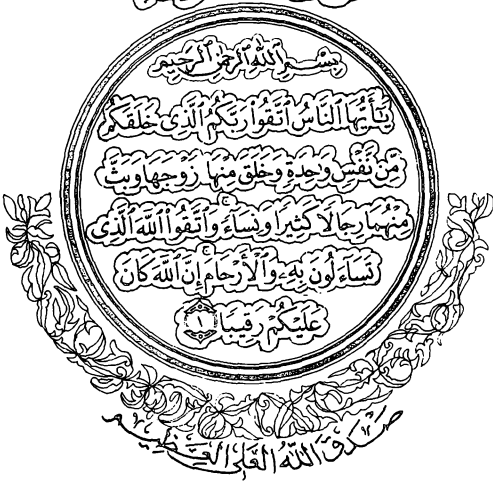 بِسْمِ اللَّهِ الرَّحْمَٰنِ الرَّحِيمِ
يَٰٓأَيُّهَا النَّاسُ اتَّقُوا۟ رَبَّكُمُ الَّذِى خَلَقَكُم
مِّن نَّفْسٍ وَٰحِدَةٍ وَخَلَقَ مِنْهَا زَوْجَهَا وَبَثَّ
مِنْهُمَا رِجَالًا كَثِيرًا وَنِسَآءً ۚ وَاتَّقُوا۟ اللَّهَ الَّذِى
تَسَآءَلُونَ بِهِۦ وَالْأَرْحَامَ ۚ إِنَّ اللَّهَ كَانَ
عَلَيْكُمْ رَقِيبًا ١
صَدَقَ اللَّهُ العَلِيُّ العَظِيم